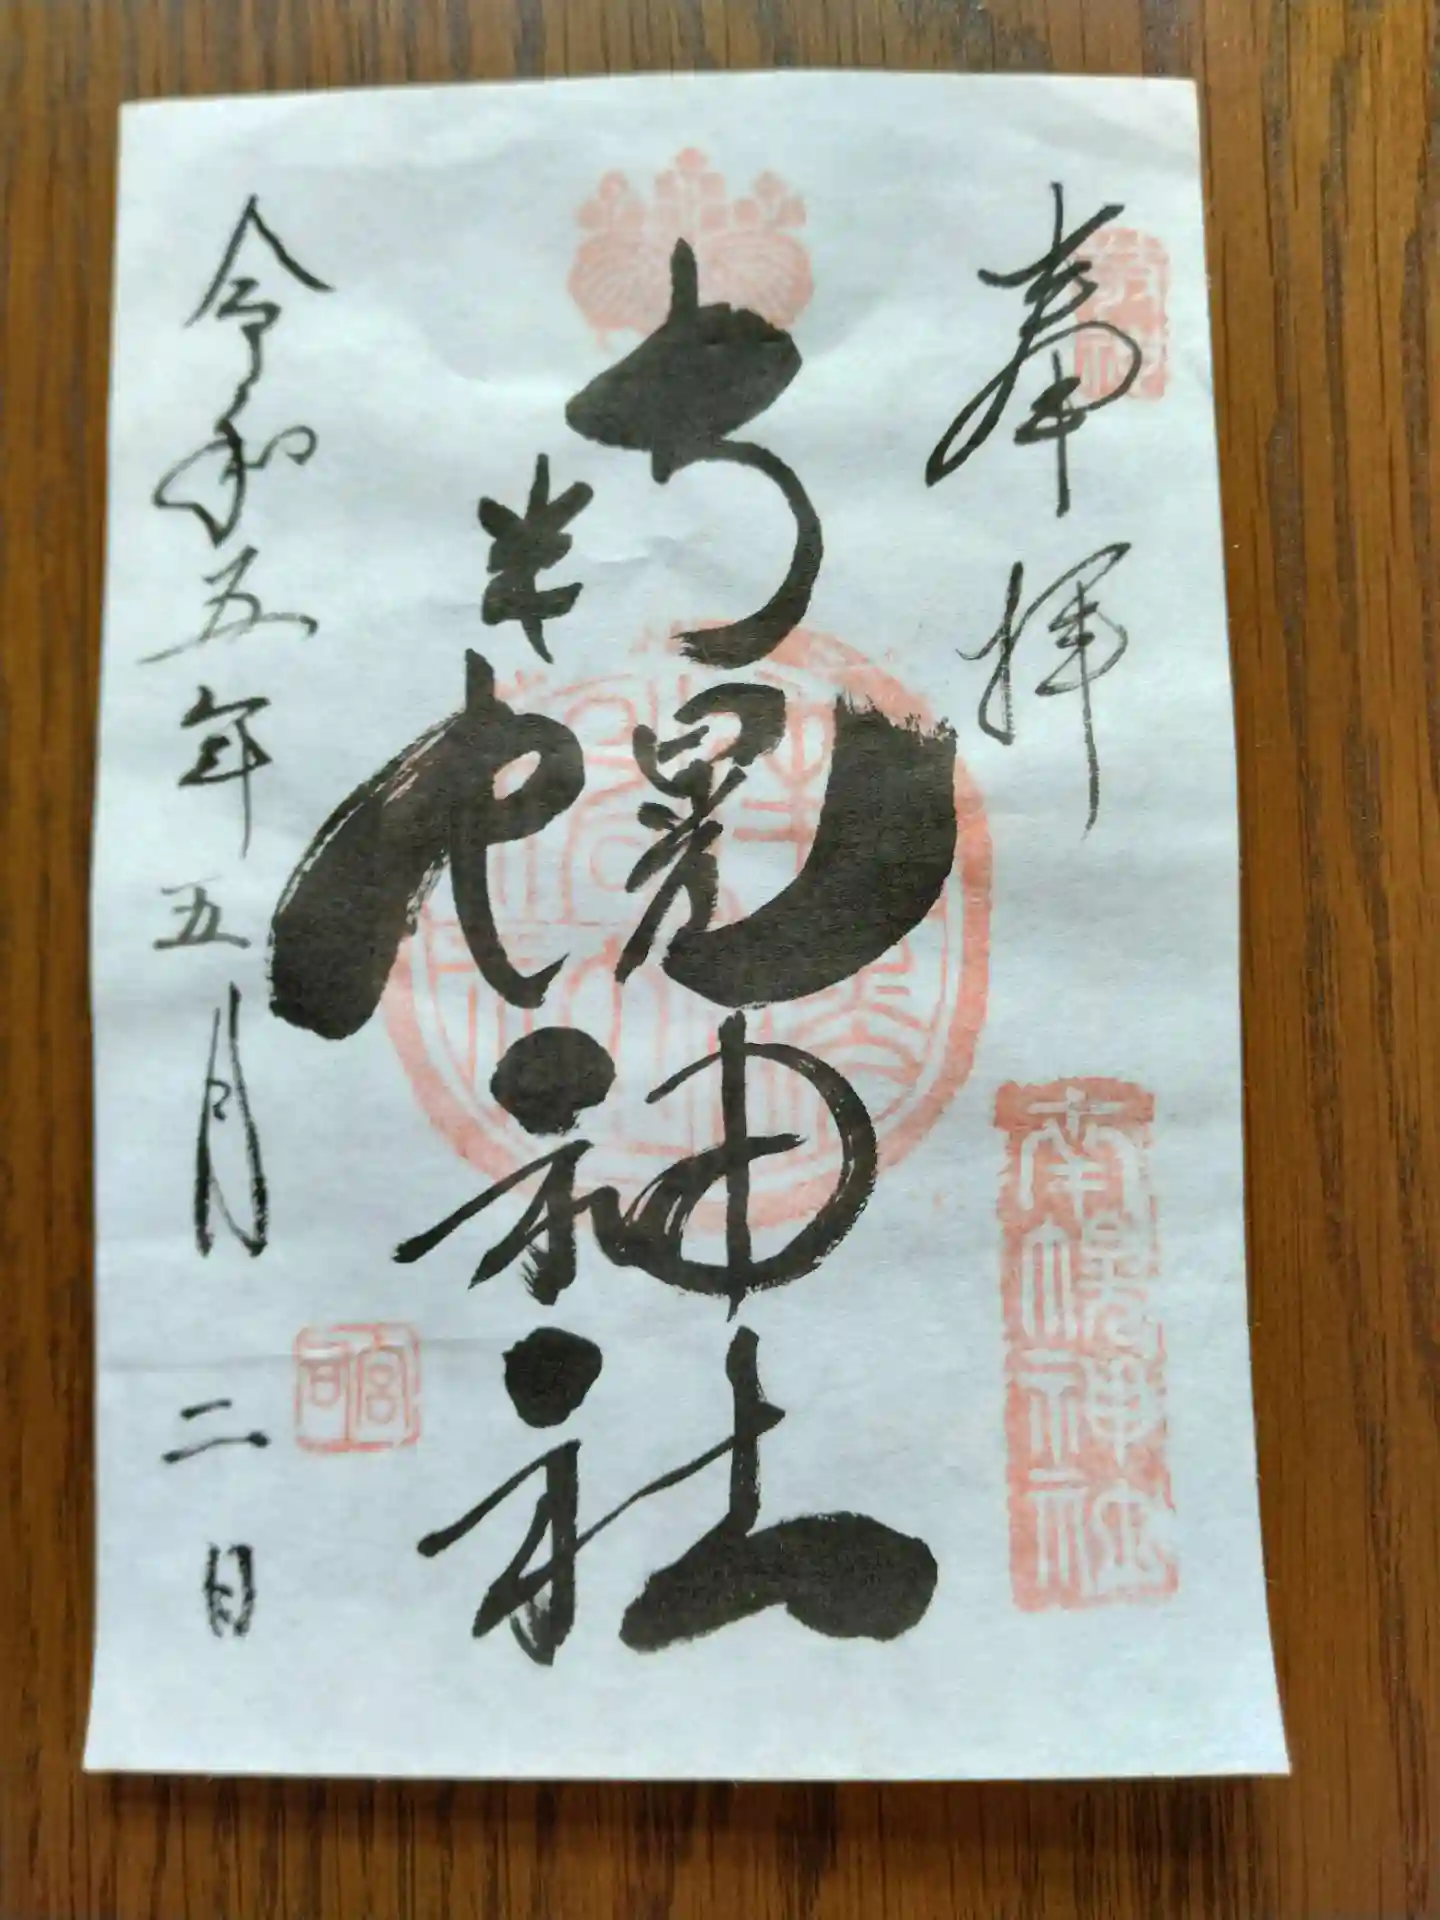 奉拝
南幌神社
南幌神社
宮司
令和五年五月二日